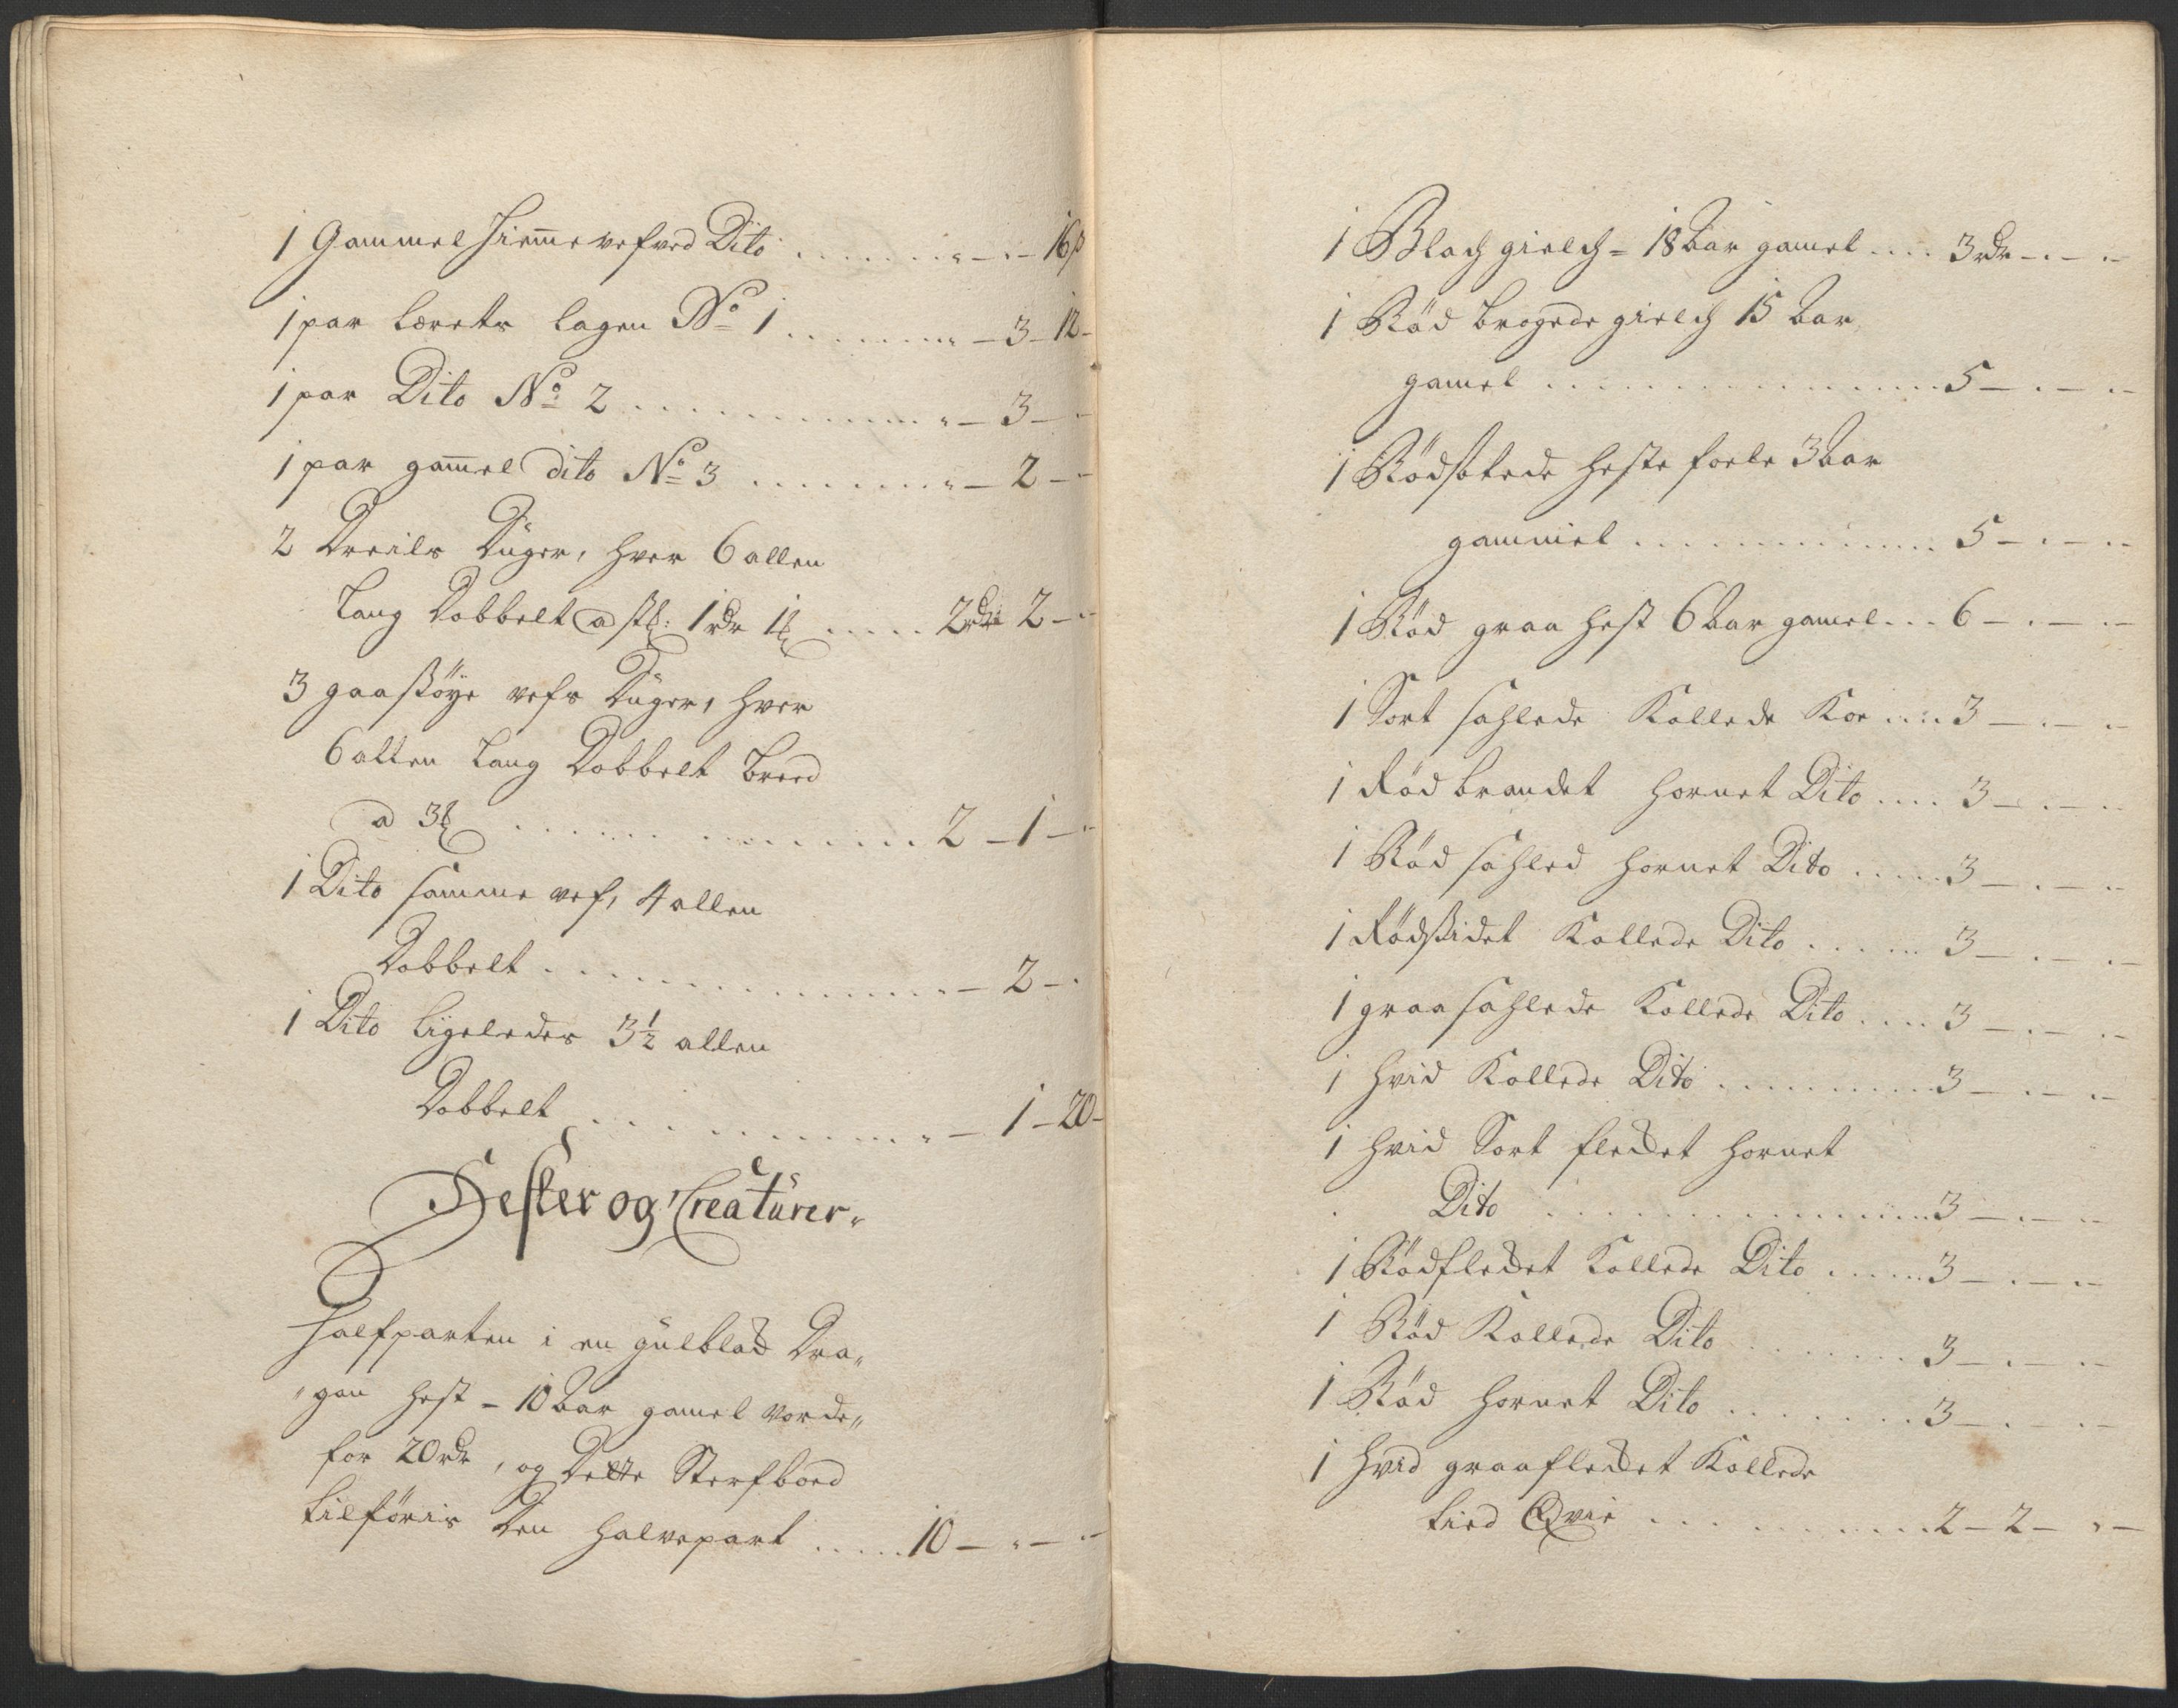 1 Gammel Hiemevefved Dito ........ " - " - 16 ß
1 par Lærets lagen No 1 ........ " - 3 - 12 -
1 par Dito No 2 ........ " - 3 - "
1 par gamel dito No 3 ........ " - 2 - "
2 Dreils Düger, hver 6 allen
Lang Dobbelt a st: 1 rdr 1 ..... 2 rdr 2 - "
3 gaasøye vefs Düger, hver
6 allen Lang Dobbelt bred
a 3 ........ 2 - 1 - "
1 Dito samme vef, 4 allen
Dobbelt ........ " - 2 - "
1 Dito ligeledes 3½ allen
Dobbelt ........ " - 1 - 20 -
Hester og Creatürer.
Halfparten i en gülblad Dra„
„gon hest - 10 aar gamel vorde„
for 20 rdr, og Dette Sterfboed
tilføris Den halvepart ..... 10 - " - "
1 Blach gielch - 18 aar gamel .... 3 rdr - " - "
1 Rød brogede gielch 15 aar
gamel ........ 5 - " - "
1 Rød heste foele 3 aar
gammel ........ 5 - " - "
1 Rød graa hest 6 aar gamel ... 6 - " - "
1 Sort sahlede Kollede Koe .... 3 - " - "
1 Rød brandet hornet Dito .... 3 - " - "
1 Rød sahled hornet Dito ..... 3 - " - "
1 Rødsidet Kollede Dito ...... 3 - " - "
1 graa sahlede Kollede Dito .... 3 - " - "
1 hvid Kollede Dito ........ 3 - " - "
1 hvid Sort flecket hornet
Dito ........ 3 - " - "
1 Rødflecket Kollede Dito ..... 3 - " - "
1 Rød Kollede Dito ....... 3 - " - "
1 Rød hornet Dito ....... 3 - " - "
1 hvid graaflecket Kollede
tied Qvie ........ 2 - 2 - "